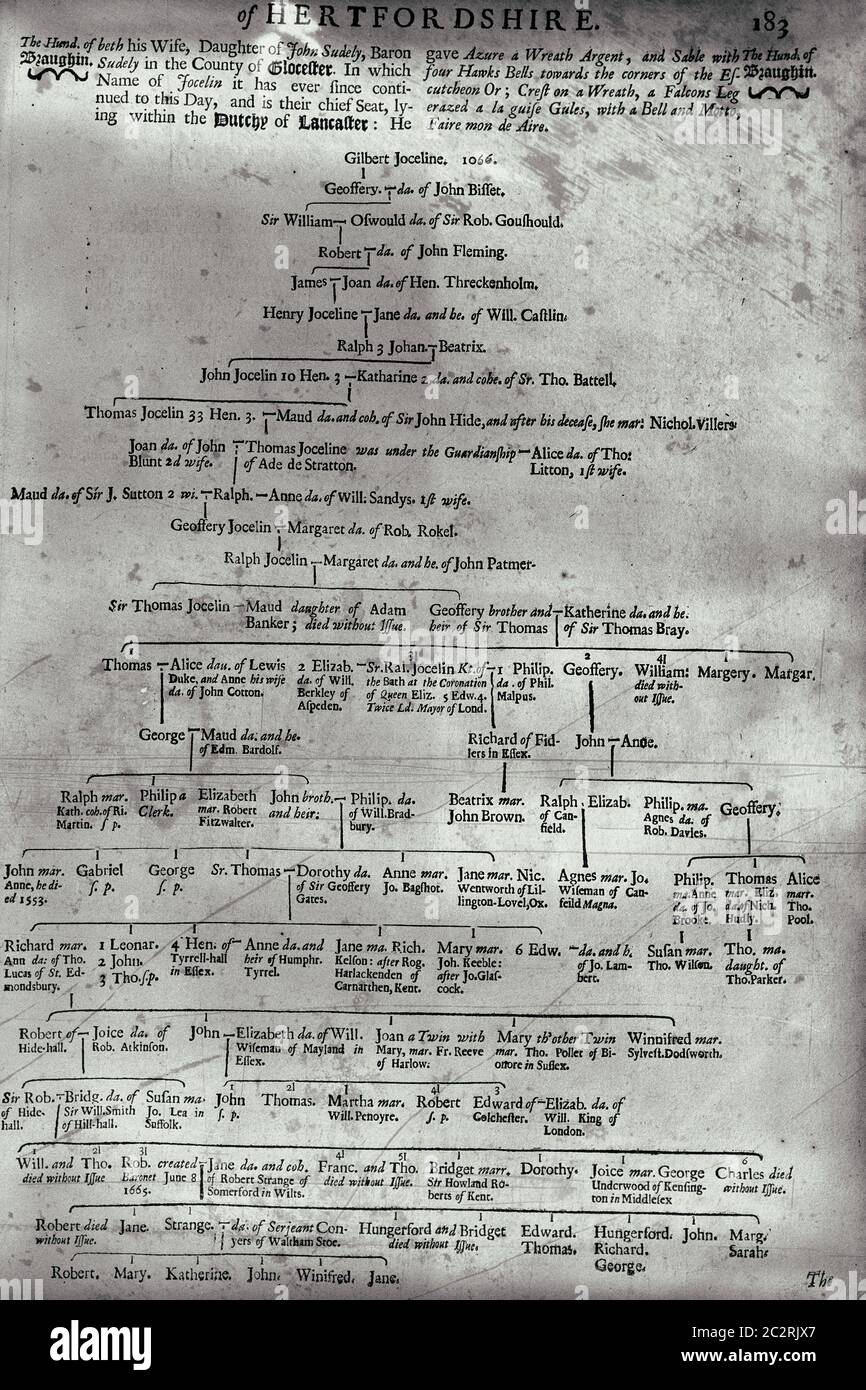 of HERTFORDSHIRE. 183
The Hund. of
Braughin.
beth his Wife, Daughter of John Sudely, Baron
Sudely in the County of Glocester. In which
Name of Jocelin it has ever since conti-
nued to this Day, and is their chief Seat, ly-
ing within the Dutchy of Lancaster: He
gave Azure a Wreath Argent, and Sable with
four Hawks Bells towards the corners of the Es-
cutcheon Or; Crest on a Wreath, a Falcons Leg
erazed a la guise Gules, with a Bell and Motto,
Faire mon de Aire.
The Hund. of
Braughin.
Gilbert Joceline. 1066.
Geoffery. da. of John Bisset.
Sir William Oswould da. of Sir Rob. Goushould.
Robert da. of John Fleming.
James Joan da. of Hen. Threckenholm.
Henry Joceline Jane da. and he. of Will. Castlin.
Ralph 3 Johan. Beatrix.
John Jocelin 10 Hen. 3 Katharine 2 da. and cohe. of Sr. Tho. Battell.
Thomas Jocelin 33 Hen. 3. Maud da. and coh. of Sir John Hide, and after his decease, she mar: Nichol. Villers.
Joan da. of John
Blunt 2d wife.
Thomas Joceline was under the Guardianship
of Ade de Stratton.
Alice da. of Tho:
Litton, 1st wife.
Maud da. of Sir J. Sutton 2 wi. Ralph. Anne da. of Will: Sandys. 1st wife.
Geoffery Jocelin Margaret da. of Rob. Rokel.
Ralph Jocelin Margaret da. and he. of John Patmer-
Sir Thomas Jocelin Maud daughter of Adam
Banker; died without Issue.
Geoffery brother and
heir of Sir Thomas
Katherine da. and he.
of Sir Thomas Bray.
1
Thomas
Alice dau. of Lewis
Duke, and Anne his wife
da. of John Cotton.
2 Elizab.
da. of Will.
Berkley of
Aspeden.
31
Sr. Ral. Jocelin Kt. of
the Bath at the Coronation
of Queen Eliz. 5 Edw. 4.
Twice Ld. Mayor of Lond.
1 Philip.
da. of Phil.
Malpus.
2
Geoffery.
41
William:
died with-
out Issue.
Margery. Margar.
George Maud da. and he.
of Edm. Bardolf.
Richard of Fid-
lers in Essex.
John Anne.
Ralph mar.
Kath. coh. of Ri.
Martin. s. p.
Philip a
Clerk.
Elizabeth
mar. Robert
Fitzwalter.
John broth.
and heir:
Philip. da.
of Will. Brad-
bury.
Beatrix mar.
John Brown.
Ralph
of Can-
field.
Elizab.
Philip. ma.
Agnes da. of
Rob. Davies.
Geoffery.
John mar.
Anne, he di-
ed 1553.
Gabriel
s. p.
George
s. p.
Sr. Thomas
Dorothy da.
of Sir Geoffery
Gates.
Anne mar.
Jo. Bagshot.
Jane mar. Nic.
Wentworth of Lil-
lington-Lovel, Ox.
Agnes mar. Jo.
Wiseman of Can-
feild Magna.
Philip.
ma. Anne
da. of Jo.
Brooke.
Thomas
mar. Eliz.
da. of Nich.
Hudly.
Alice
marr.
Tho.
Pool.
Richard mar.
Ann da: of Tho.
Lucas of St. Ed-
mondsbury.
1 Leonar.
2 John.
3 Tho. s. p.
4 Hen. of
Tyrrell-hall
in Essex.
Anne da. and
heir of Humphr.
Tyrrel.
Jane ma. Rich.
Kelson: after Rog.
Harlackenden of
Carnarthen, Kent.
Mary mar.
Joh. Keeble:
after Jo. Glas-
cock.
6 Edw.
da. and h.
of Jo. Lam-
bert.
Susan mar.
Tho. Wilson.
Tho. ma.
daught. of
Tho. Parker.
Robert of
Hide-hall.
Joice da. of
Rob. Atkinson.
John
Elizabeth da. of Will.
Wiseman of Mayland in
Essex.
Joan a Twin with
Mary, mar. Fr. Reeve
of Harlow.
Mary th'other Twin
mar. Tho. Pollet of Bi-
omore in Sussex.
Winnifred mar.
Sylvest. Dodsworth.
Sir Rob.
of Hide-
hall.
Bridg. da. of
Sir Will. Smith
of Hill-hall.
Susan ma.
Jo. Lea in
Suffolk.
1
John
s. p.
21
Thomas.
Martha mar.
Will. Penoyre.
41
Robert
s. p.
3
Edward of
Colchester.
Elizab. da. of
Will. King of
London.
1 21
Will. and Tho.
died without Issue
31
Rob. created
Baronet June 8
1665.
Jane da. and coh.
of Robert Strange of
Somerford in Wilts.
41 51
Franc. and Tho.
died without Issue.
Bridget marr.
Sir Howland Ro-
berts of Kent.
Dorothy.
Joice mar. George
Underwood of Kensing-
ton in Middlesex
6
Charles died
without Issue.
Robert died
without Issue.
Jane.
Strange.
da. of Serjeant Con-
yers of Waltham Stoe.
Hungerford and Bridget
died without Issue.
Edward.
Thomas.
Hungerford.
Richard.
George.
John.
Marg.
Sarah.
Robert. Mary. Katherine. John. Winifred. Jane.
The
alamy
Image ID: 2C2RJX7
www.alamy.com